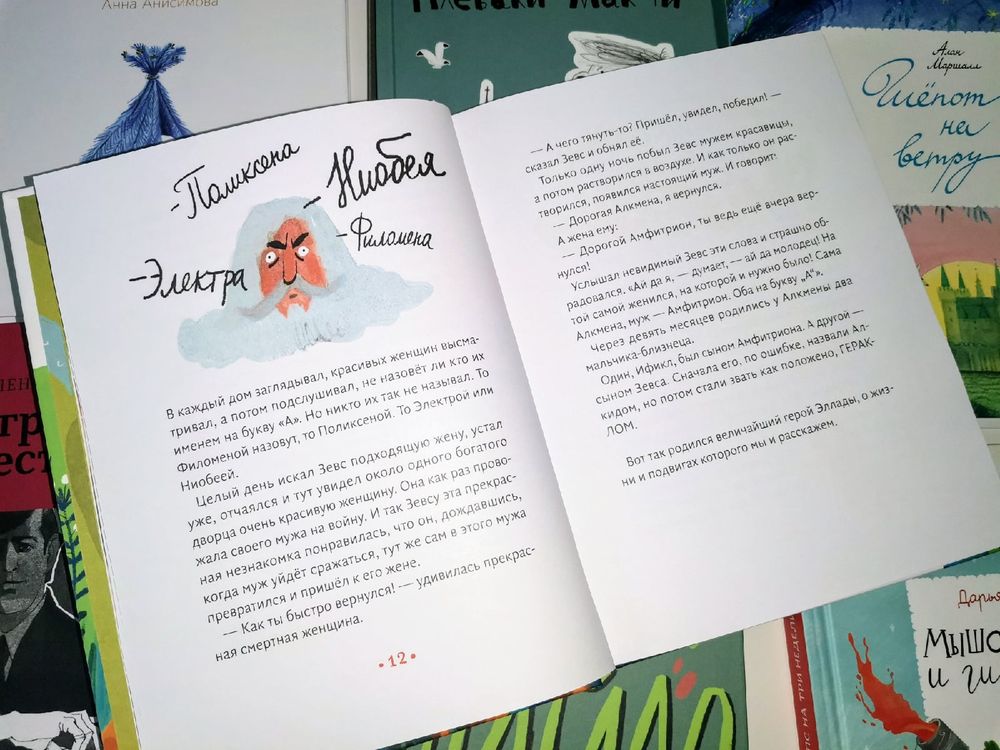 Анна Анисимова
Плеваки
Алан
Маршалл
Шёпот
на
ветру
-Поликсена
-Ниобея
-Филомена
-Электра
В каждый дом заглядывал, красивых женщин высма-
тривал, а потом подслушивал, не назовёт ли кто их
именем на букву «А». Но никто их так не называл. То
Филоменой назовут, то Поликсеной. То Электрой или
Ниобеей.
Целый день искал Зевс подходящую жену, устал
уже, отчаялся и тут увидел около одного богатого
дворца очень красивую женщину. Она как раз прово-
жала своего мужа на войну. И так Зевсу эта прекрас-
ная незнакомка понравилась, что он, дождавшись,
когда муж уйдёт сражаться, тут же сам в этого мужа
превратился и пришёл к его жене.
— Как ты быстро вернулся! — удивилась прекрас-
ная смертная женщина.
•12•
— А чего тянуть-то? Пришёл, увидел, победил! —
сказал Зевс и обнял её.
Только одну ночь побыл Зевс мужем красавицы,
а потом растворился в воздухе. И как только он рас-
творился, появился настоящий муж. И говорит:
— Дорогая Алкмена, я вернулся.
А жена ему:
— Дорогой Амфитрион, ты ведь ещё вчера вер-
нулся!
Услышал невидимый Зевс эти слова и страшно об-
радовался. «Ай да я, — думает, — ай да молодец! На
той самой женился, на которой и нужно было! Сама
Алкмена, муж — Амфитрион. Оба на букву „А“».
Через девять месяцев родились у Алкмены два
мальчика-близнеца.
Один, Ификл, был сыном Амфитриона. А другой —
сыном Зевса. Сначала его, по ошибке, назвали Ал-
кидом, но потом стали звать как положено, ГЕРАК-
ЛОМ.
Вот так родился величайший герой Эллады, о жиз-
ни и подвигах которого мы и расскажем.
Дарья
МЫШО
и ги
НА ТРИ НЕДЕЛИ